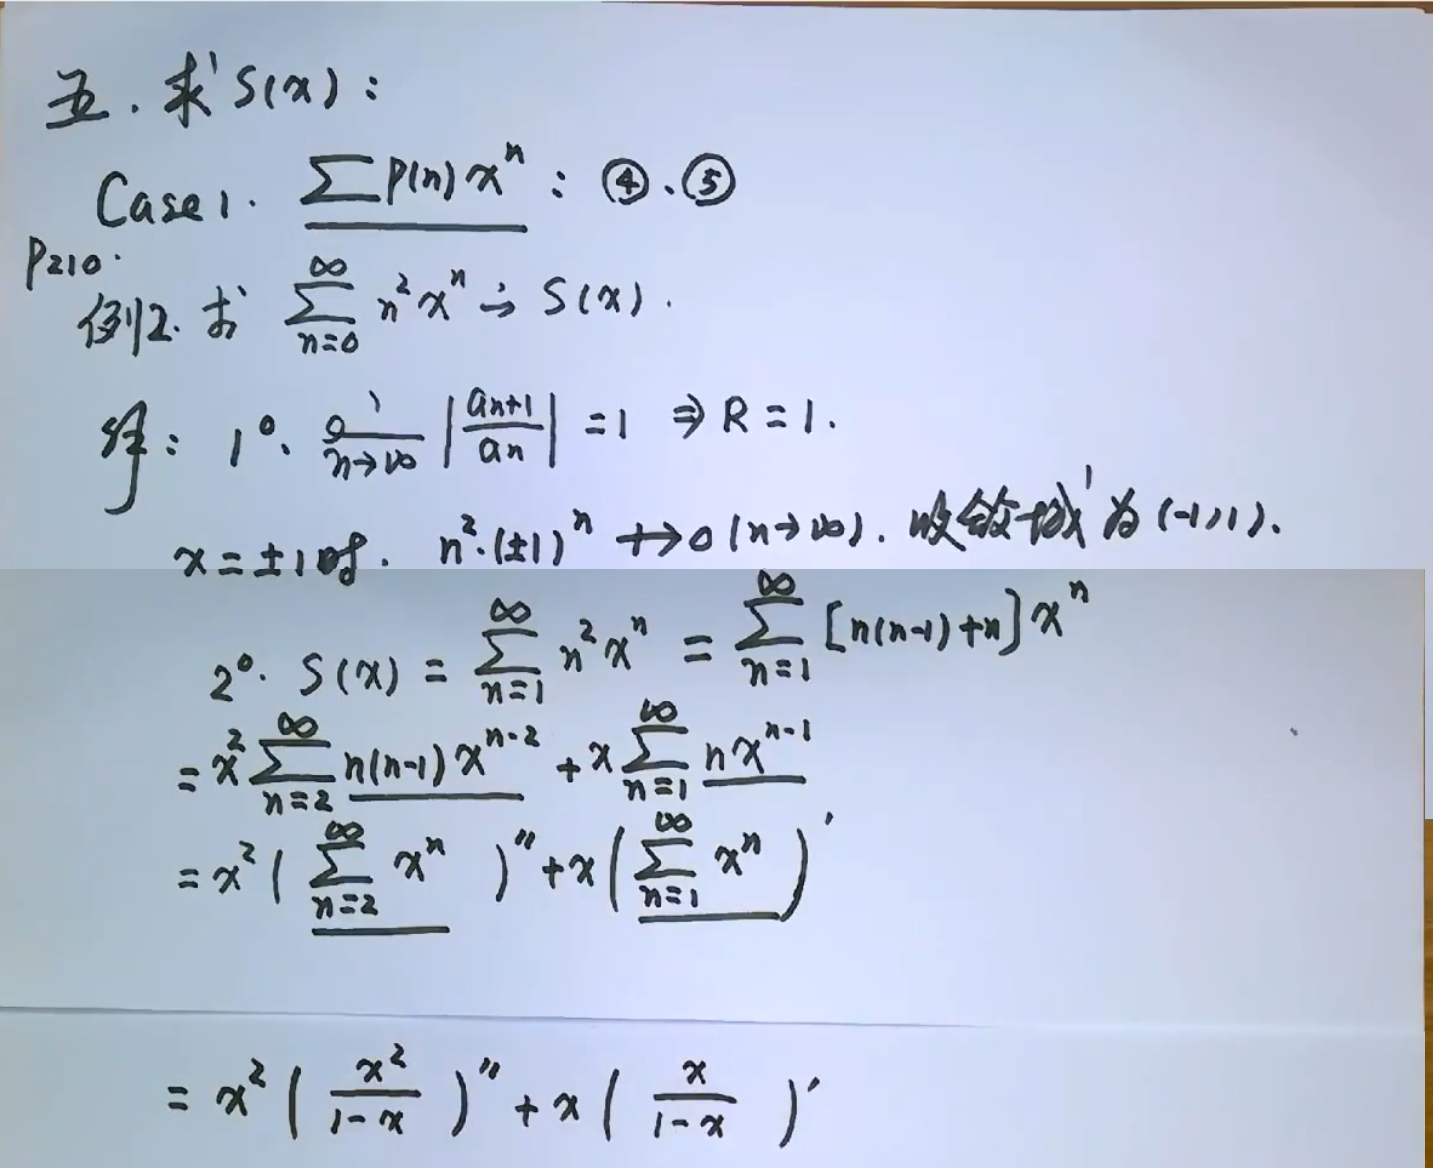 五. 求 S(x):
Case 1. ∑P(n)xⁿ : ④.⑤
P210.
例2. 求 ∑_{n=0}^{∞} n²xⁿ 之 S(x).
解: 1°. lim_{n→∞} |a_{n+1}/a_n| = 1 ⇒ R = 1.
x = ±1时. n²·(±1)ⁿ ↛ 0 (n→∞). 收敛域为 (-1,1).
2°. S(x) = ∑_{n=1}^{∞} n²xⁿ = ∑_{n=1}^{∞} [n(n-1)+n]xⁿ
= x² ∑_{n=2}^{∞} n(n-1)x^{n-2} + x ∑_{n=1}^{∞} nx^{n-1}
= x² ( ∑_{n=2}^{∞} xⁿ )'' + x ( ∑_{n=1}^{∞} xⁿ )'
= x² ( x²/(1-x) )'' + x ( x/(1-x) )'